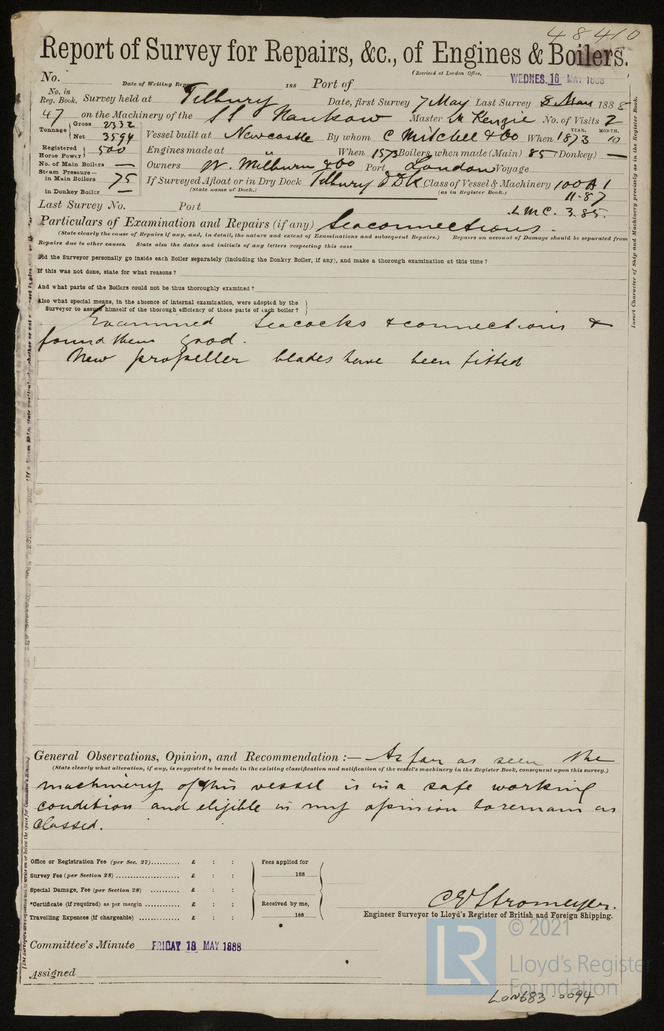 48410
Report of Survey for Repairs, &c., of Engines & Boilers.
(Received at London Office,
No. Date of Writing Rep 188 Port of WEDNES. 16 MAY 1888
No. in Reg. Book. Survey held at Tilbury Date, first Survey 7 May Last Survey 8 May 1888
47 on the Machinery of the SS Nankow Master McKenzie No. of Visits 2
Tonnage Gross 2332 Net 3594 Vessel built at Newcastle By whom C Mitchell & Co When YEAR. 1873 MONTH. 10
Registered Horse Power 500 Engines made at " When 1873 Boilers, when made (Main) 85 (Donkey) —
No. of Main Boilers — Owners W. Milburn & Co Port London Voyage
Steam Pressure— in Main Boilers 75 If Surveyed Afloat or in Dry Dock Tilbury D Dk Class of Vessel & Machinery 100 A 1
(State name of Dock.) (as in Register Book.) 11.87
in Donkey Boiler —
Last Survey No. Port L.M.C. 3.85.
Particulars of Examination and Repairs (if any) Seaconnections.
(State clearly the cause of Repairs if any, and, in detail, the nature and extent of Examinations and subsequent Repairs.) Repairs on account of Damage should be separated from
Repairs due to other causes. State also the dates and initials of any letters respecting this case
Did the Surveyor personally go inside each Boiler separately (including the Donkey Boiler, if any), and make a thorough examination at this time?
If this was not done, state for what reasons?
And what parts of the Boilers could not be thus thoroughly examined?
Also what special means, in the absence of internal examination, were adopted by the
Surveyor to assure himself of the thorough efficiency of those parts of each boiler?
Examined Seacocks & connections &
found them good.
New propeller blades have been fitted
Insert Character of Ship and Machinery precisely as in the Register Book.
General Observations, Opinion, and Recommendation :— As far as seen the
(State clearly what alteration, if any, is suggested to be made in the existing classification and notification of the vessel's machinery in the Register Book, consequent upon this survey.)
machinery of this vessel is in a safe working
condition and eligible in my opinion to remain as
Classed.
Office or Registration Fee (per Sec. 27) £ : : Fees applied for
Survey Fee (per Section 28) £ : : 188
Special Damage, Fee (per Section 28) £ : :
*Certificate (if required) as per margin £ : : Received by me,
Travelling Expences (if chargeable) £ : : 188
C E Stromeyer.
Engineer Surveyor to Lloyd's Register of British and Foreign Shipping.
Committee's Minute FRIDAY 18 MAY 1888
Assigned
© 2021
LR
Lloyd's Register
Foundation
LON683-0094